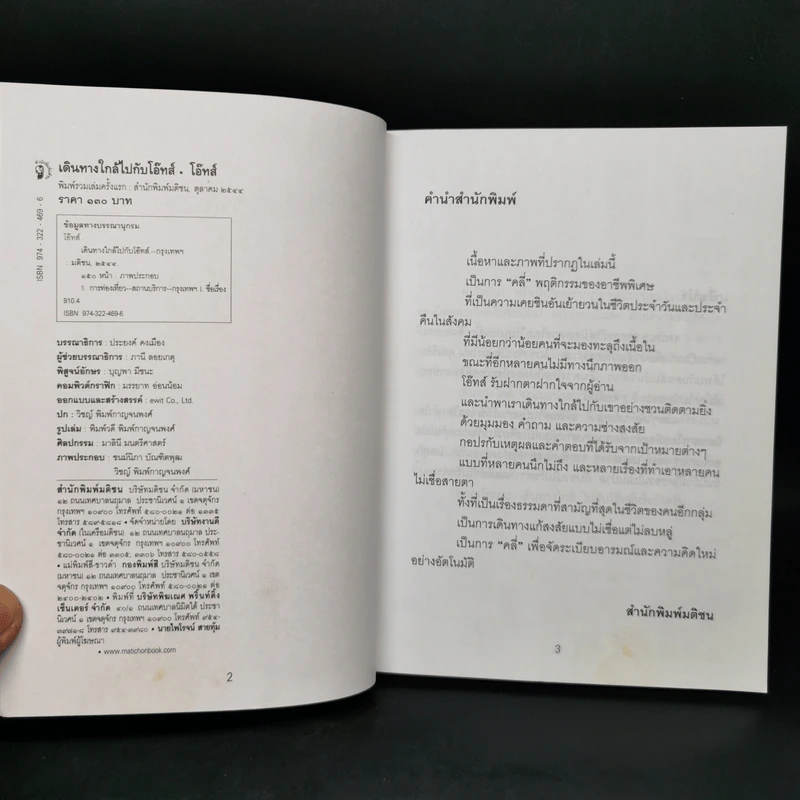 เดินทางใกล้ไปกับโอ๊ทส์ • โอ๊ทส์
พิมพ์รวมเล่มครั้งแรก : สำนักพิมพ์มติชน, ตุลาคม ๒๕๔๔
ราคา ๑๓๐ บาท
ISBN 974 - 322 - 469 - 6
ข้อมูลทางบรรณานุกรม
โอ๊ทส์
เดินทางใกล้ไปกับโอ๊ทส์.--กรุงเทพฯ
: มติชน, ๒๕๔๔.
๑๕๐ หน้า : ภาพประกอบ
1. การท่องเที่ยว--สถานบริการ--กรุงเทพฯ I. ชื่อเรื่อง
910.4
ISBN 974-322-469-6
บรรณาธิการ : ประยงค์ คงเมือง
ผู้ช่วยบรรณาธิการ : ภานี ลอยเกตุ
พิสูจน์อักษร : บุญพา มีชนะ
คอมพิวต์กราฟิก : มรรยาท อ่อนน้อม
ออกแบบและสร้างสรรค์ : ewit Co., Ltd.
ปก : วิชญ์ พิมพ์กาญจนพงศ์
รูปเล่ม : พิมพ์วดี พิมพ์กาญจนพงศ์
ศิลปกรรม : มาลินี มนตรีศาสตร์
ภาพประกอบ : ชนม์นิภา บัณฑิตพุฒ
วิชญ์ พิมพ์กาญจนพงศ์
สำนักพิมพ์มติชน บริษัทมติชน จำกัด (มหาชน)
๑๒ ถนนเทศบาลนฤมาล ประชานิเวศน์ ๑ เขตจตุจักร
กรุงเทพฯ ๑๐๙๐๐ โทรศัพท์ ๕๘๐-๐๐๒๑ ต่อ ๑๒๓๕
โทรสาร ๕๘๙-๕๘๑๘ • จัดจำหน่ายโดย บริษัทงานดี
จำกัด (ในเครือมติชน) ๑๒ ถนนเทศบาลนฤมาล ประชา
นิเวศน์ ๑ เขตจตุจักร กรุงเทพฯ ๑๐๙๐๐ โทรศัพท์
๕๘๐-๐๐๒๑ ต่อ ๓๓๐๕, ๓๓๐๖ โทรสาร ๕๘๐-๐๕๕๘
• แม่พิมพ์สี-ขาวดำ กองพิมพ์สี บริษัทมติชน จำกัด
(มหาชน) ๑๒ ถนนเทศบาลนฤมาล ประชานิเวศน์ ๑ เขต
จตุจักร กรุงเทพฯ ๑๐๙๐๐ โทรศัพท์ ๕๘๐-๐๐๒๑ ต่อ
๒๔๐๐-๒๔๐๒ • พิมพ์ที่ บริษัทพิฆเณศ พริ้นท์ติ้ง
เซ็นเตอร์ จำกัด ๔๐/๑ ถนนเทศบาลนิมิตใต้ ประชา
นิเวศน์ ๑ เขตจตุจักร กรุงเทพฯ ๑๐๙๐๐ โทรศัพท์ ๙๕๔-
โทรสาร ๙๕๔-๓๙๘๐ • นายไพโรจน์ สายทุ้ม
ผู้พิมพ์ผู้โฆษณา
• www.matichonbook.com
2
คำนำสำนักพิมพ์
เนื้อหาและภาพที่ปรากฏในเล่มนี้
เป็นการ “คลี่” พฤติกรรมของอาชีพพิเศษ
ที่เป็นความเคยชินอันเย้ายวนในชีวิตประจำวันและประจำ
คืนในสังคม
ที่มีน้อยกว่าน้อยคนที่จะมองทะลุถึงเนื้อใน
ขณะที่อีกหลายคนไม่มีทางนึกภาพออก
โอ๊ทส์ รับฝากตาฝากใจจากผู้อ่าน
และนำพาเราเดินทางใกล้ไปกับเขาอย่างชวนติดตามยิ่ง
ด้วยมุมมอง คำถาม และความช่างสงสัย
กอปรกับเหตุผลและคำตอบที่ได้รับจากเป้าหมายต่างๆ
แบบที่หลายคนนึกไม่ถึง และหลายเรื่องที่ทำเอาหลายคน
ไม่เชื่อสายตา
ทั้งที่เป็นเรื่องธรรมดาที่สามัญที่สุดในชีวิตของคนอีกกลุ่ม
เป็นการเดินทางแก้สงสัยแบบไม่เชื่อแต่ไม่ลบหลู่
เป็นการ “คลี่” เพื่อจัดระเบียบอารมณ์และความคิดใหม่
อย่างอัตโนมัติ
สำนักพิมพ์มติชน
3